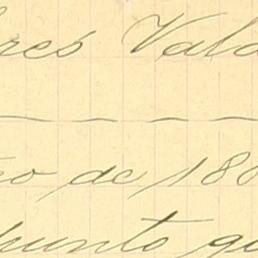 res Vald
o de 18
punto qu